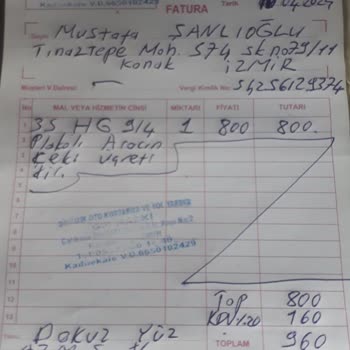 Kadifekale V.D.6650102429
FATURA
Tarih 10.04.2024
Sayın Mustafa ŞANLIOĞLU
Tınaztepe Mah. 574 sk no 79/11
Konak İZMİR
Müşteri V.Dairesi Vergi Kimlik No 54256129374
MAL VEYA HİZMETİN CİNSİ MİKTARI FİYATI TUTARI
1 35 HG 914 1 800 800.
2 Plakalı Aracın
3 Çeki ücreti
4 dir.
5
6
7
8
9
10
11
12
13
OTO KURTARMA VE YOL YARDIM
No:2
Kadifekale V.D.6650102429
TOP 800
KDV %20 160
TOPLAM 960
Dokuz Yüz